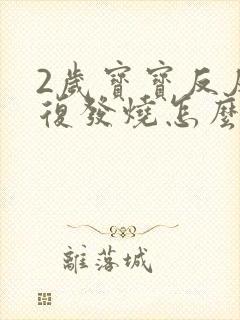 2歲寶寶反反
復發燒怎麼
離落城